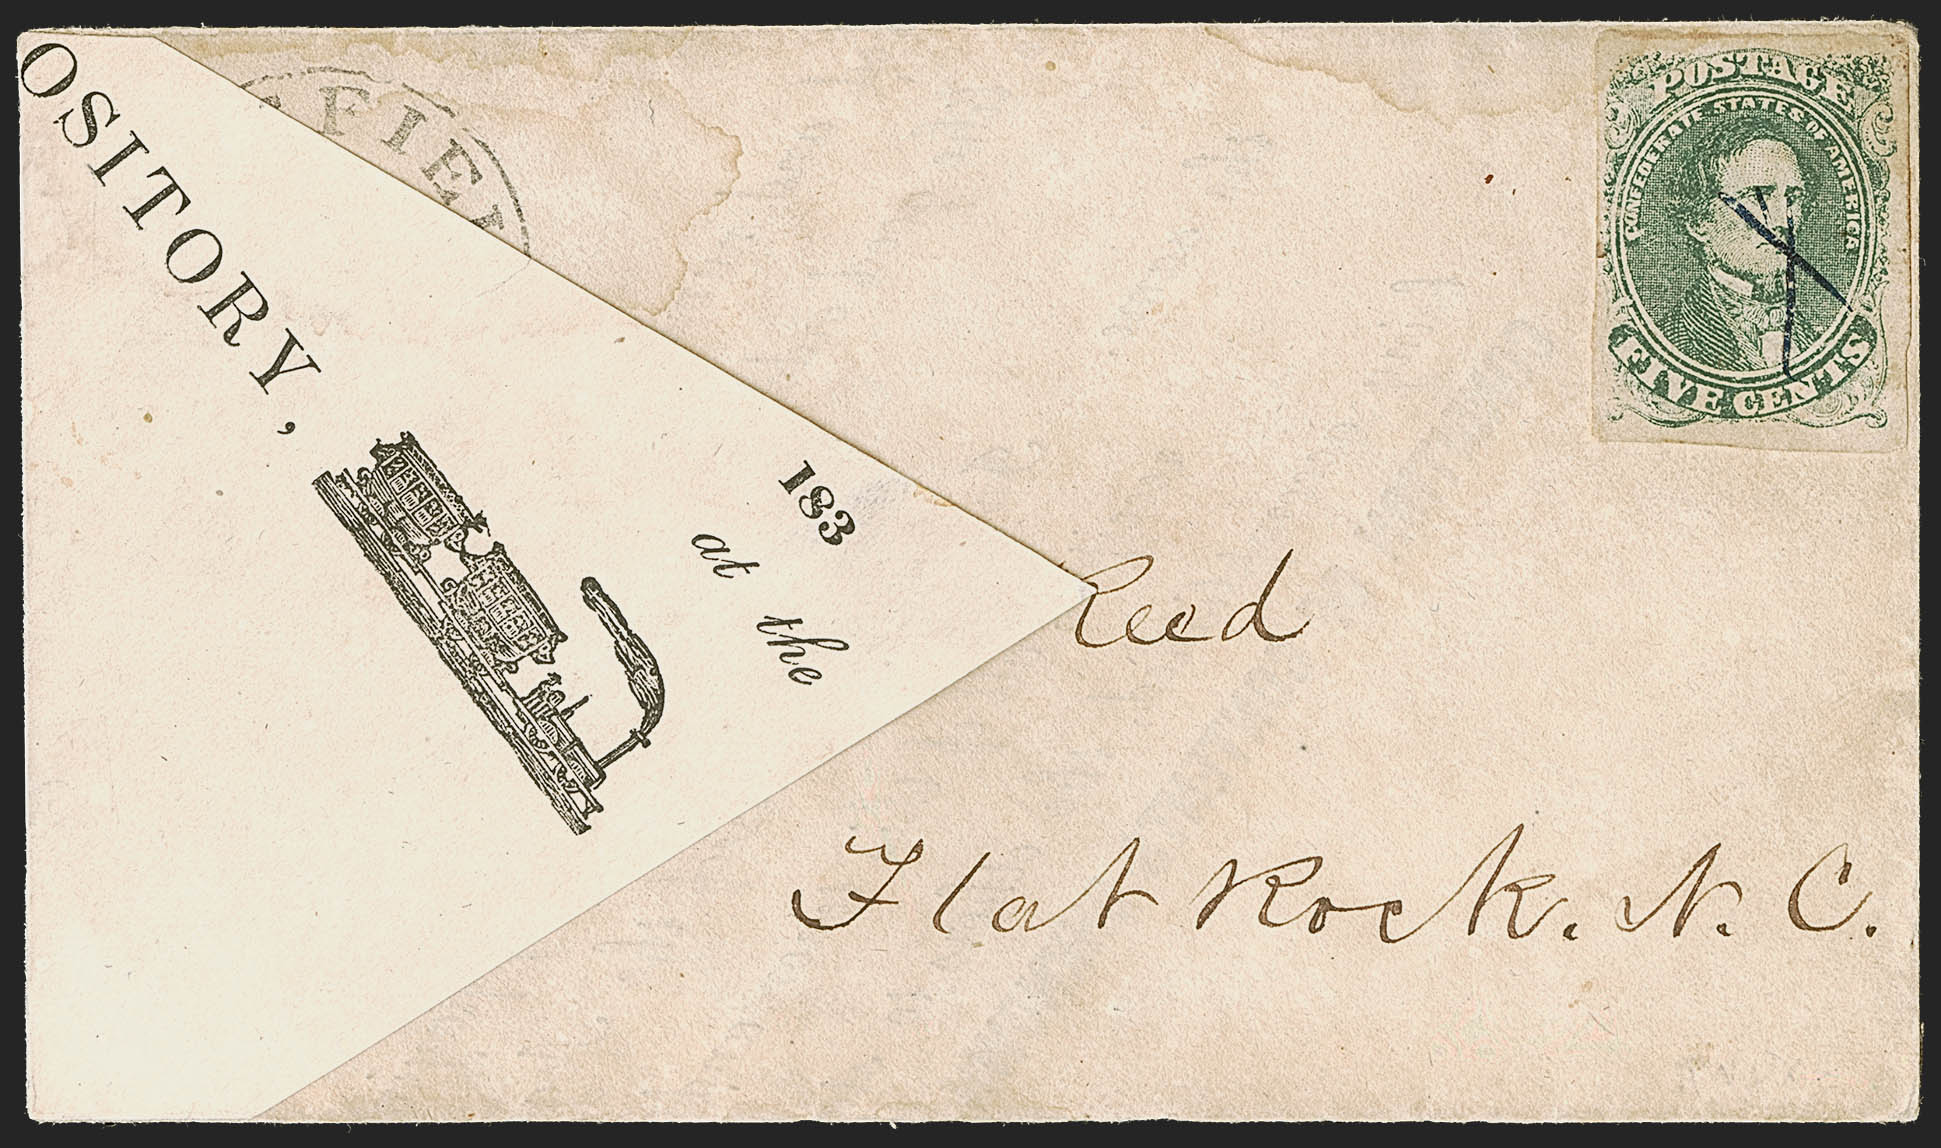 OSITORY,
FIEL
POSTAGE
CONFEDERATE STATES OF AMERICA
FIVE CENTS
183
at the
Reed
Flat Rock. N. C.